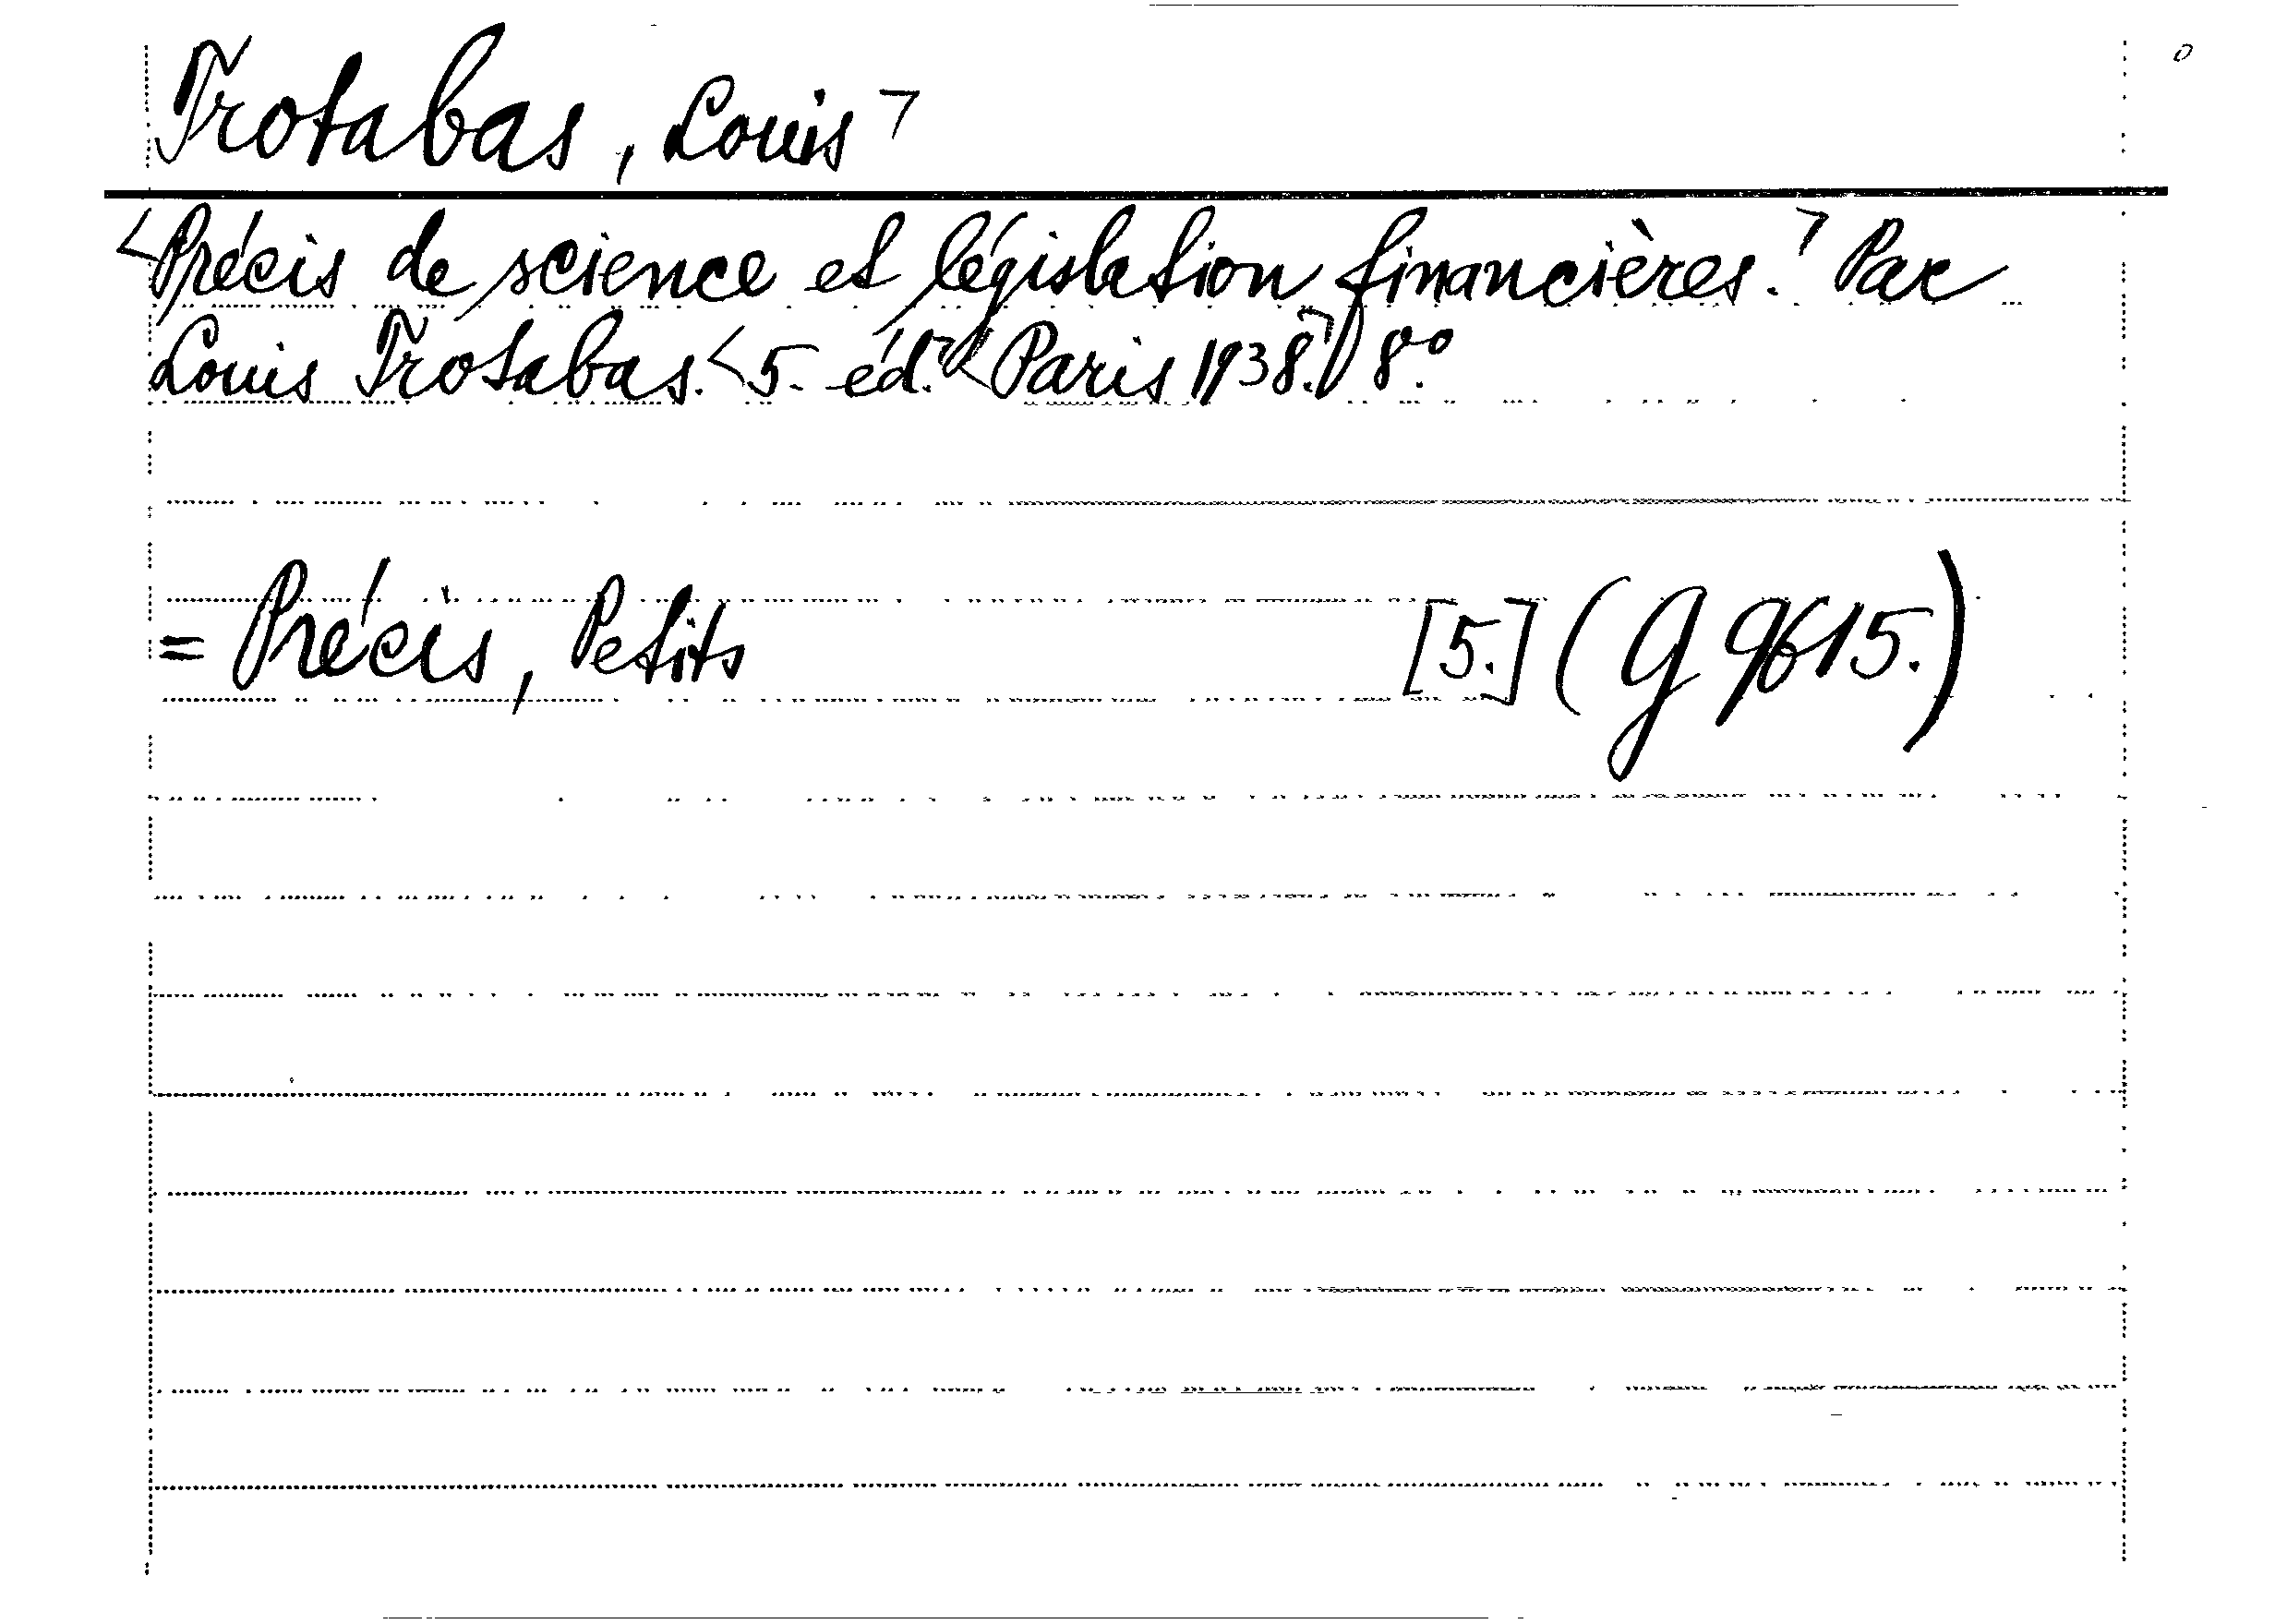 Trotabas, Louis ┐
<Précis de science et législation financières.┐ Par
Louis Trotabas. <5. éd.┐ <Paris 1938.┐ 8°.
= Précis, Petits [5.] (G 9615.)